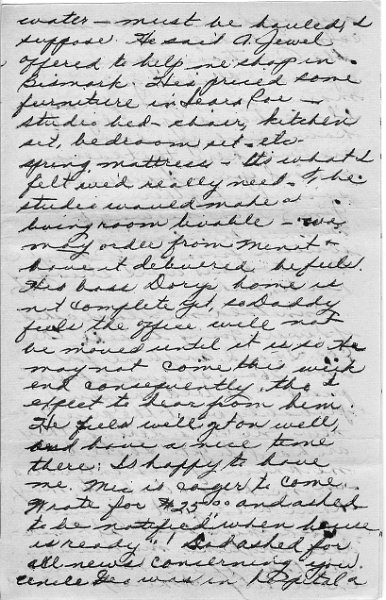 water - must be hauled, I
suppose. He said A. Jewel
offered to help me shop in
Bismark. He's priced some
furniture in Sears Roe -
studio bed - chair, kitchen
set, bedroom set - etc -
spring, mattress - It's what I
felt we'd really need - & the
studio would make a
living room livable - we
may order from Minot &
have it delivered he feels.
His boss Dory's home is
not complete yet, so Daddy
feels the office will not
be moved until it is so he
may not come this week
end consequently, tho I
expect to hear from him.
He feels we'll get on well,
and have a nice time
there: Is happy to have
me. Mic is eager to come.
Wrote for $25.00 and asked
to be notified "when house
is ready"! Dad asked for
all news concerning you.
Uncle Geo was in hospital a